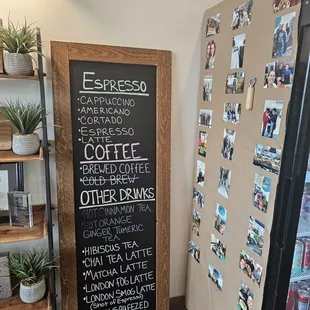 ESPRESSO
• CAPPUCCINO
• AMERICANO
• CORTADO
• ESPRESSO
• LATTE
COFFEE
• BREWED COFFEE
• COLD BREW
OTHER DRINKS
HOT CINNAMON TEA
HOT ORANGE
GINGER TUMERIC TEA
• HIBISCUS TEA
• CHAI TEA LATTE
• MATCHA LATTE
• LONDON FOG LATTE
• LONDON SMOG LATTE
(Shot of Espresso)
SQUEEZED